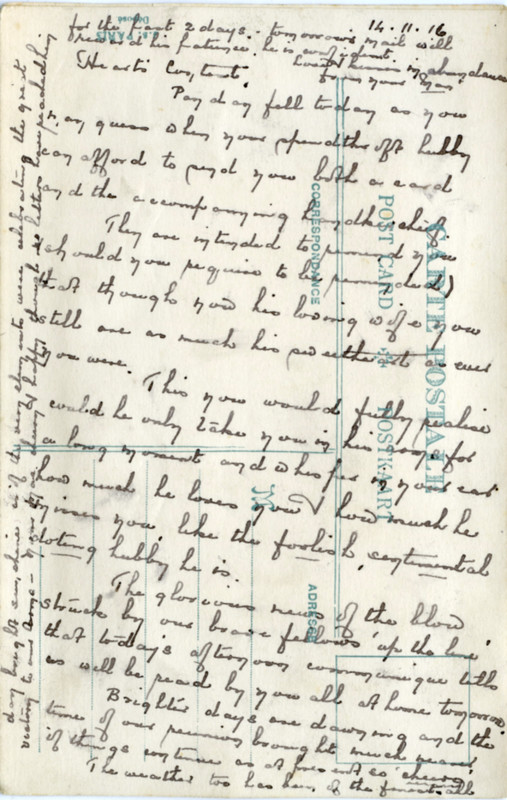 14.11.16
Heart's Content.
Payday fell today as you
may guess when your spendthrift hubby
can afford to send you both a card
and the accompanying handkerchief.
They are intended to remind you
(should you require to be reminded)
that though now his loving wife you
still are as much his sweetheart as ever
you were.
This you would fully realise
could he only take you in his arms for
a long moment and whisper in your ear
how much he loves you & how much he
misses you, like the foolish, sentimental
doting hubby he is.
The glorious news of the blow
struck by our brave fellows 'up the line'
that today's afternoon communiqué tells
us will be read by you all at home tomorrow.
Brighter days are dawning and the
time of our reunion brought much nearer
if things continue as at present so cheery.
The weather too has been of the finest all
day bright sunshine as if the very elements were celebrating the great
victory to our arms - your man cheery & happy though no letters have reached him
for the past 2 days. Tomorrow's mail will
reward his patience he is confident.
Love & kisses in abundance
from your Man
CARTE POSTALE
POST CARD POSTKART
CORRESPONDANCE
ADRESSE
M
PARIS
Déposé